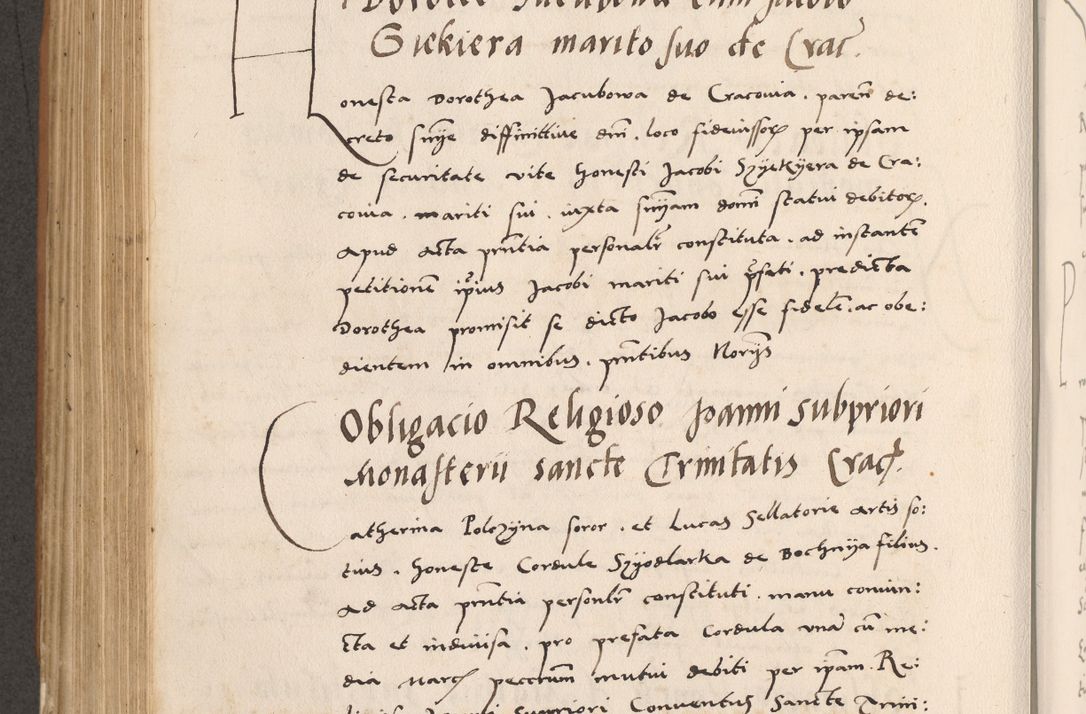 Giekiera marito suo de Crac.
Honesta Dorothea Jacubowa de Cracovia . paren de:
creto sniie diffinittive dni . loco fideiussorz per ipsam
de securitate vite honesti Jacobi Szyekyera de Cra:
covia . mariti sui . iuxta sniiam domni statui debitorz .
Apud Acta prntia personalr constituta . ad instantem
petitionem ipius Jacobi mariti sui pfati . predicta
Dorothea promisit se dicto Jacobo esse fidelem . ac obe:
dientem in omnibus . prntibus Noriis
Obligacio Religioso Joanni Subpriori
Monasterii Sancte Trinitatis Crac.
Catherina Polczyna soror . et Lucas Sellatorie artis so:
tius . honeste Cordule Szyodlarka de Bochniia filius .
Ad Acta prntia personlr constituti . manu coniun:
cta et indiuisa . pro prefata Cordula una cum me:
dia marc peccrum mutui debiti per ipam . Re: